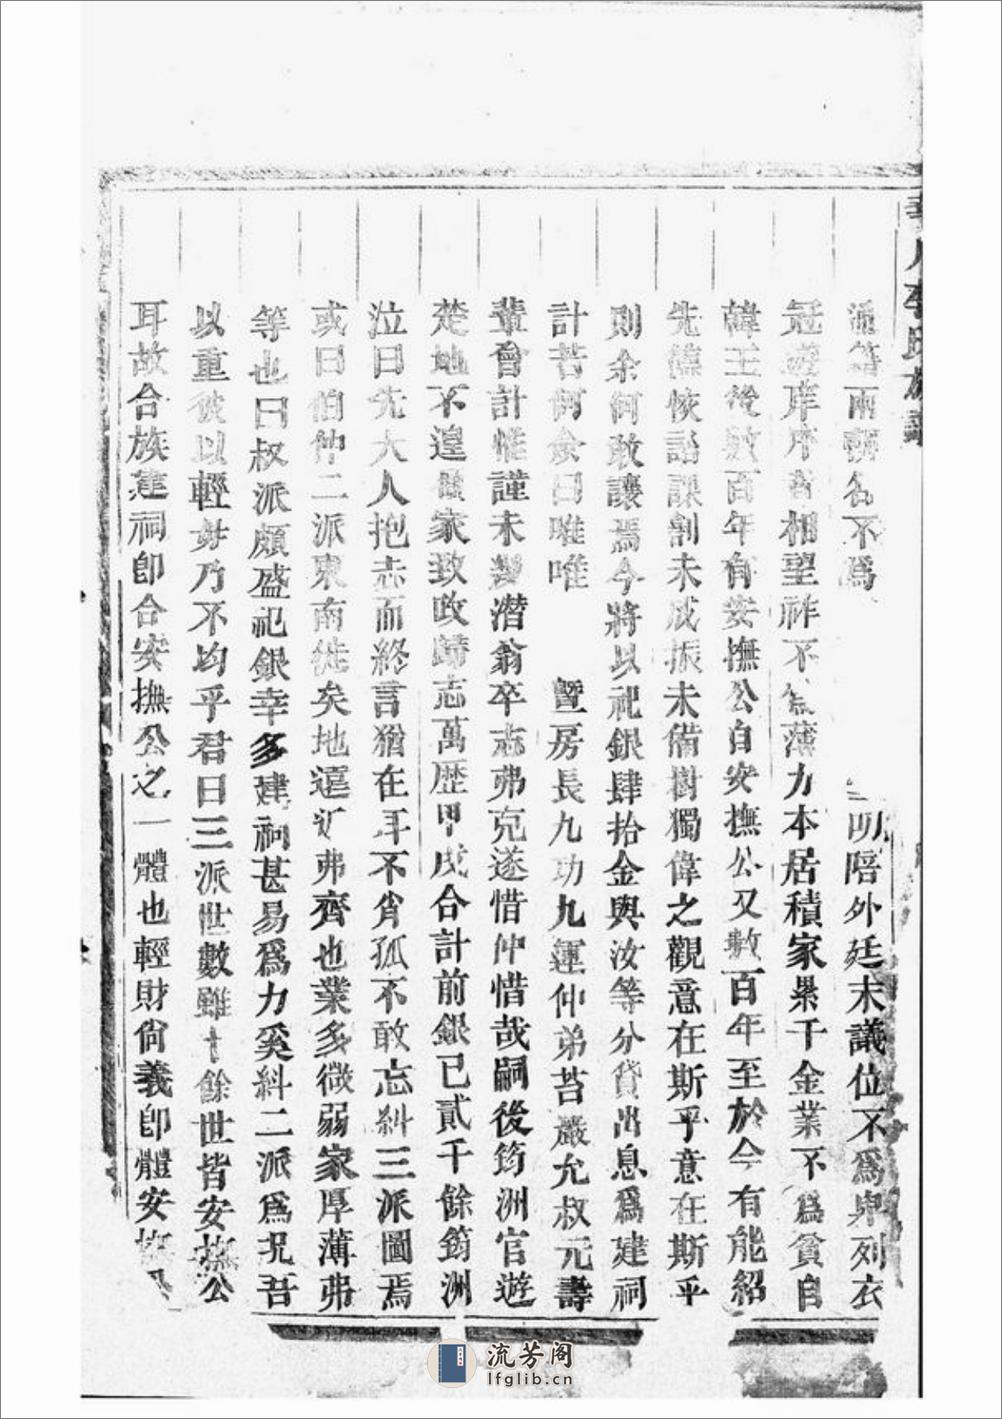 李氏族譜
通籍兩朝名不爲 明陪外廷末議位不爲卑列衣
冠遊庠序者相望祚不爲薄力本居積家累千金業不爲貧自
韓王後數百年有安撫公自安撫公又數百年至於今有能紹
先偉恢詒謀創未成振未備樹獨偉之觀意在斯乎意在斯乎
則余何敢讓焉今將以祀銀肆拾金與汝等分貸出息爲建祠
計若何僉曰唯唯 曁房長九功九運仲弟苔嚴允叔元壽
輩會計惟謹未幾潛翁卒志弗克遂惜仲惜哉嗣後筠洲官遊
楚地不遑爲家致政歸志萬歷甲戌合計前銀已貳千餘筠洲
泣曰先大人抱志而終言猶在耳不肖孤不敢忘糾三派圖焉
或曰伯仲二派東南徙矣地遠近弗齊也業多微弱家厚薄弗
等也曰叔派頗盛祀銀幸多建祠甚易爲力奚糾二派爲況吾
以重彼以輕毋乃不均乎君曰三派世數雖十餘世皆安撫公
耳故合族建祠卽合安撫公之一體也輕財尙義卽體安撫
流芳阁
lfglib.cn